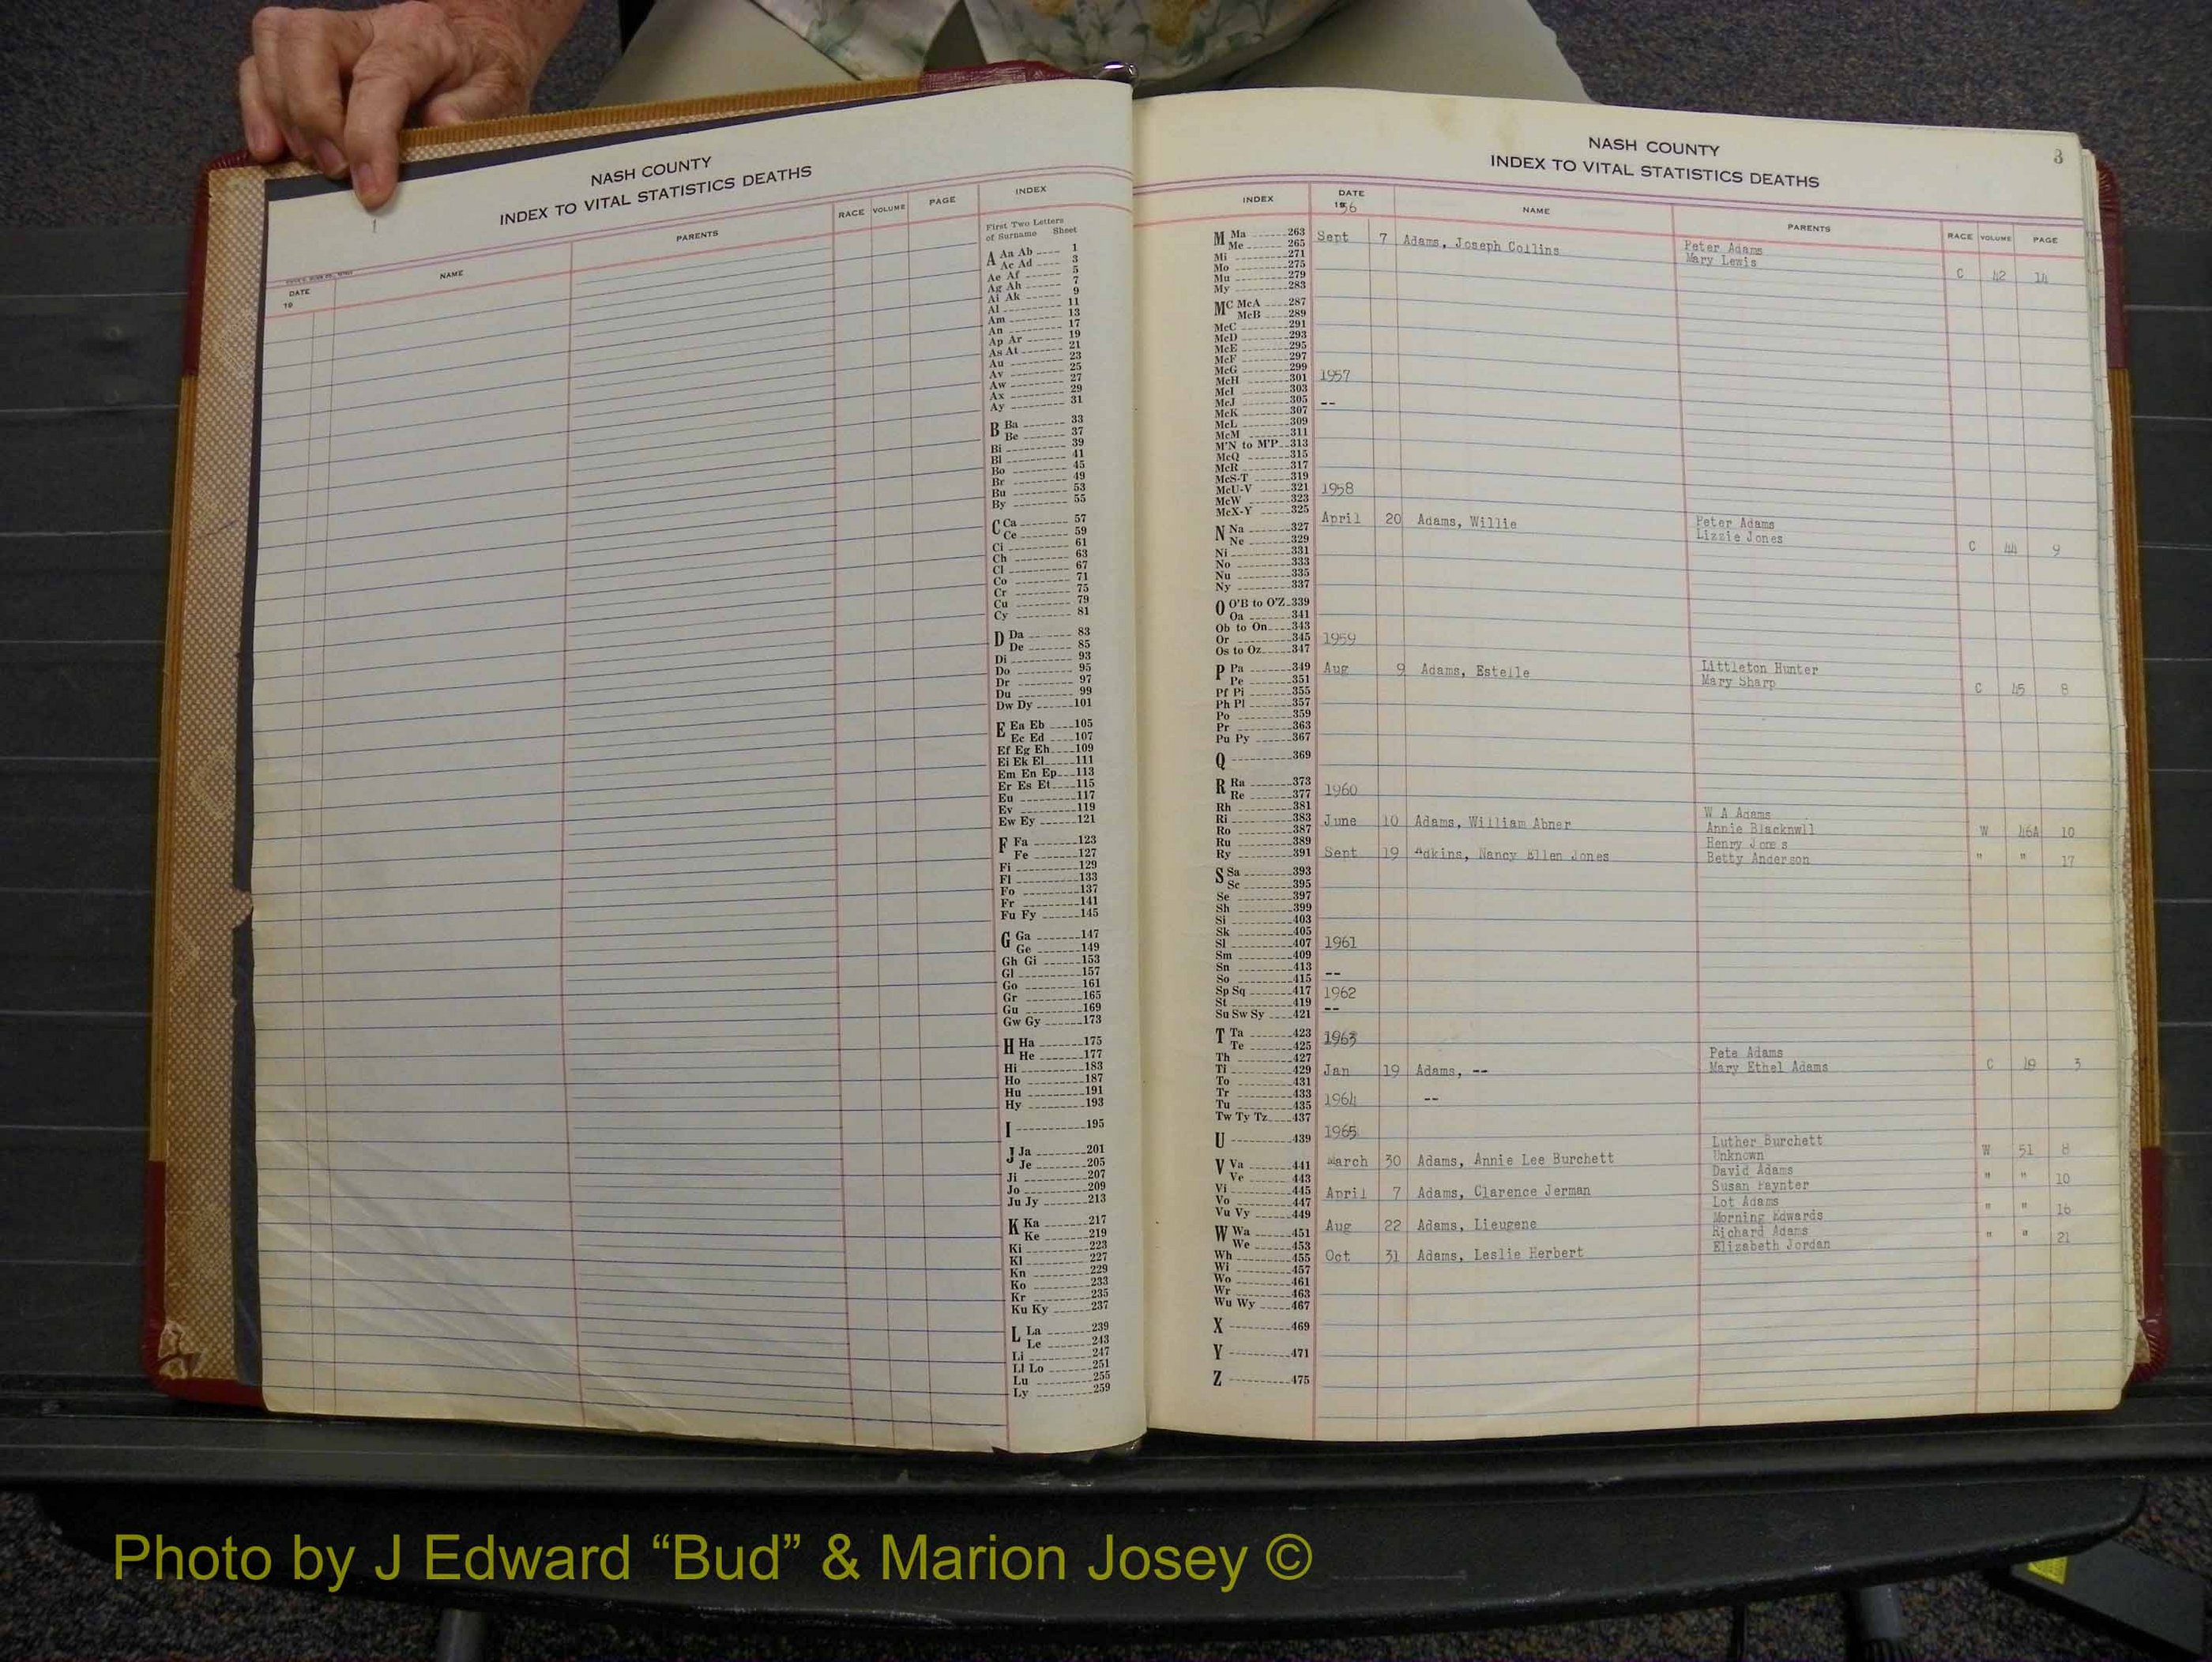 1
NASH COUNTY
INDEX TO VITAL STATISTICS DEATHS
DATE
19
NAME
PARENTS
RACE VOLUME PAGE
INDEX
First Two Letters
of Surname Sheet
A Aa Ab ---- 1
Ac Ad ---- 3
Ae Af ------ 5
Ag Ah ------ 7
Ai Ak ------ 9
Al ---------- 11
Am ---------- 13
An ---------- 17
Ap Ar ------ 19
As At ------ 21
Au ---------- 23
Av ---------- 25
Aw ---------- 27
Ax ---------- 29
Ay ---------- 31
B Ba -------- 33
Be -------- 37
Bi ---------- 39
Bl ---------- 41
Bo ---------- 45
Br ---------- 49
Bu ---------- 53
By ---------- 55
C Ca -------- 57
Ce -------- 59
Ci ---------- 61
Ch ---------- 63
Cl ---------- 67
Co ---------- 71
Cr ---------- 75
Cu ---------- 79
Cy ---------- 81
D Da -------- 83
De -------- 85
Di ---------- 93
Do ---------- 95
Dr ---------- 97
Du ---------- 99
Dw Dy ------101
E Ea Eb ----105
Ec Ed ----107
Ef Eg Eh----109
Ei Ek El----111
Em En Ep---113
Er Es Et----115
Eu ---------117
Ev ---------119
Ew Ey ------121
F Fa --------123
Fe -------127
Fi ---------129
Fl ---------133
Fo ---------137
Fr ---------141
Fu Fy ------145
G Ga -------147
Ge -------149
Gh Gi ------153
Gl ---------157
Go ---------161
Gr ---------165
Gu ---------169
Gw Gy ------173
H Ha -------175
He -------177
Hi ---------183
Ho ---------187
Hu ---------191
Hy ---------193
I -----------195
J Ja --------201
Je -------205
Ji ---------207
Jo ---------209
Ju Jy ------213
K Ka -------217
Ke -------219
Ki ---------223
Kl ---------227
Kn ---------229
Ko ---------233
Kr ---------235
Ku Ky ------237
L La -------239
Le -------243
Li ---------247
Ll Lo ------251
Lu ---------255
Ly ---------259
NASH COUNTY
INDEX TO VITAL STATISTICS DEATHS
3
INDEX
DATE
1956
NAME
PARENTS
RACE VOLUME PAGE
M Ma ------263
Me ------265
Mi ---------271
Mo ---------275
Mu ---------279
My ---------283
MC McA ----287
McB ----289
McC --------291
McD --------293
McE --------295
McF --------297
McG --------299
McH --------301
McI --------303
McJ --------305
McK --------307
McL --------309
McM --------311
M'N to M'P--313
McQ --------315
McR --------317
McS-T ------319
McU-V -----321
McW -------323
McX-Y -----325
N Na -------327
Ne -------329
Ni ---------331
No ---------333
Nu ---------335
Ny ---------337
O O'B to O'Z-339
Oa --------341
Ob to On----343
Or ---------345
Os to Oz-----347
P Pa -------349
Pe -------351
Pf Pi ------355
Ph Pl ------357
Po ---------359
Pr ---------363
Pu Py ------367
Q -----------369
R Ra -------373
Re -------377
Rh ---------381
Ri ---------383
Ro ---------387
Ru ---------389
Ry ---------391
S Sa --------393
Sc --------395
Se ---------397
Sh ---------399
Si ---------403
Sk ---------405
Sl ---------407
Sm ---------409
Sn ---------413
So ---------415
Sp Sq ------417
St ---------419
Su Sw Sy ----421
T Ta -------423
Te -------425
Th ---------427
Ti ---------429
To ---------431
Tr ---------433
Tu ---------435
Tw Ty Tz----437
U -----------439
V Va -------441
Ve -------443
Vi ---------445
Vo ---------447
Vu Vy ------449
W Wa ------451
We ------453
Wh ---------455
Wi ---------457
Wo ---------461
Wr ---------463
Wu Wy -----467
X -----------469
Y -----------471
Z -----------475
Sept 7 Adams, Joseph Collins Peter Adams
Mary Lewis C 42 14
1957
--
1958
April 20 Adams, Willie Peter Adams
Lizzie Jones C 44 9
1959
Aug 9 Adams, Estelle Littleton Hunter
Mary Sharp C 45 8
1960
W A Adams
June 10 Adams, William Abner Annie Blacknwll W 46A 10
Henry Jones
Sept 19 Adkins, Nancy Ellen Jones Betty Anderson " " 17
1961
--
1962
--
1963
Pete Adams
Jan 19 Adams, -- Mary Ethel Adams C 49 3
1964 --
1965
Luther Burchett
March 30 Adams, Annie Lee Burchett Unknown W 51 8
David Adams
April 7 Adams, Clarence Jerman Susan Paynter " " 10
Lot Adams
Aug 22 Adams, Lieugene Morning Edwards " " 16
Richard Adams
Oct 31 Adams, Leslie Herbert Elizabeth Jordan " " 21
Photo by J Edward “Bud” & Marion Josey ©